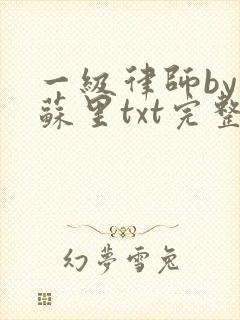 一級律師by
蘇里txt完整
幻夢雪兔